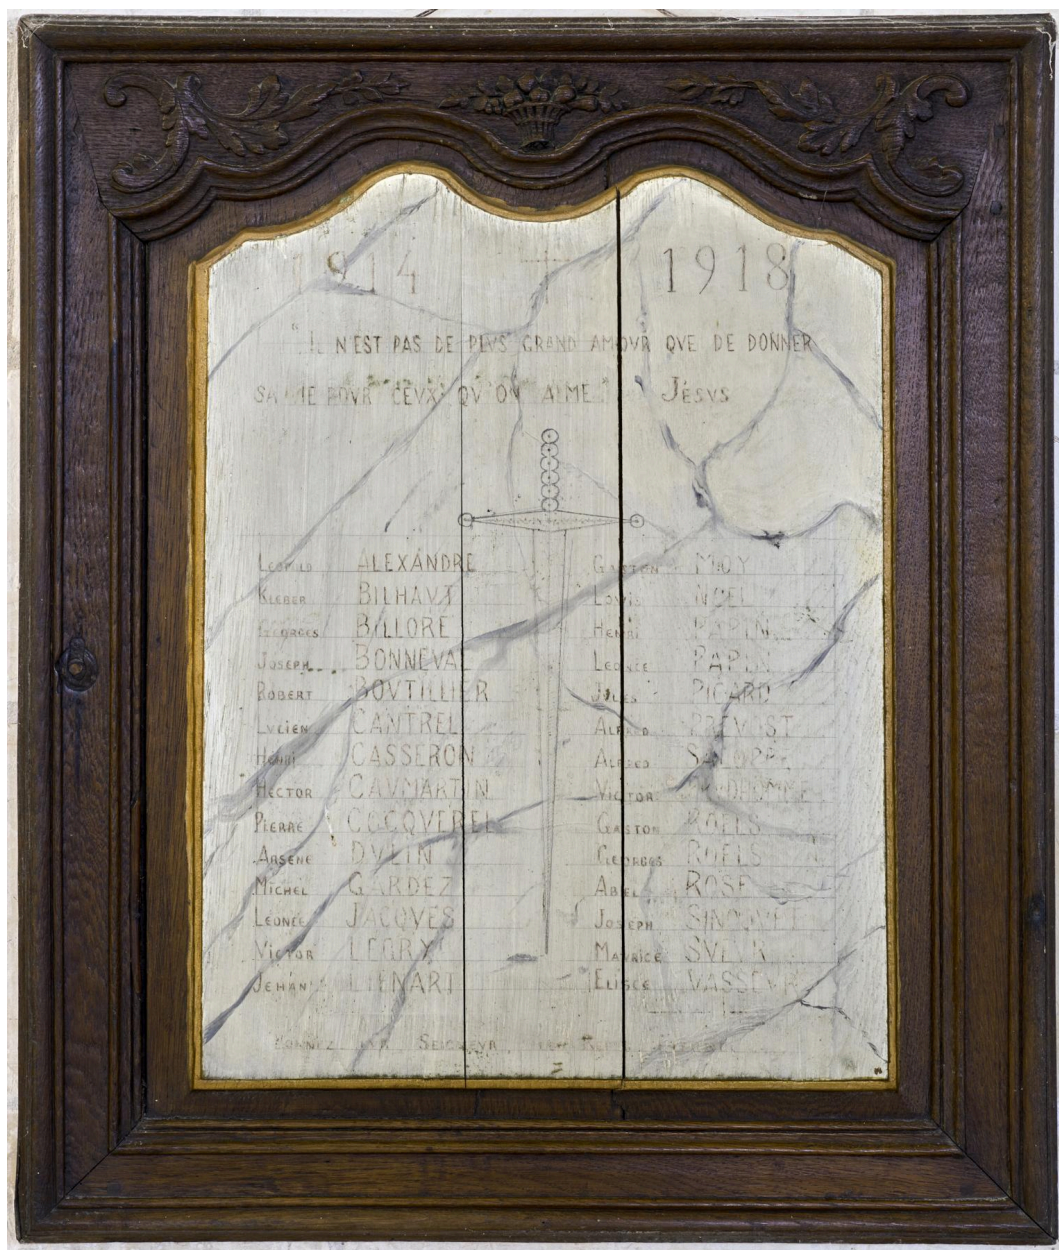 1914 1918
"IL N'EST PAS DE PLVS GRAND AMOVR QVE DE DONNER
SA VIE POVR CEVX QV'ON AIME" JÉSVS
LÉOPOLD ALEXANDRE
KLEBER BILHAVT
GEORGES BILLORE
JOSEPH BONNEVAL
ROBERT BOVTILLIER
LVCIEN CANTREL
HENRI CASSERON
HECTOR CAVMARTIN
PIERRE COCQVEREL
ARSENE DVLIN
MICHEL GARDEZ
LEONCE JACQVES
VICTOR LEGRY
JEHAN LIENART
GASTON MOY
LOVIS NOEL
HENRI
LEONCE PAPIN
JULES PICARD
ALFRED PREVOST
ALFRED
VICTOR
GASTON ROELS
GEORGES ROELS
ABEL ROSE
JOSEPH SINOQVET
MAVRICE SVEVR
ELISÉE VASSEVR
DONNEZ LEVR SEIGNEVR